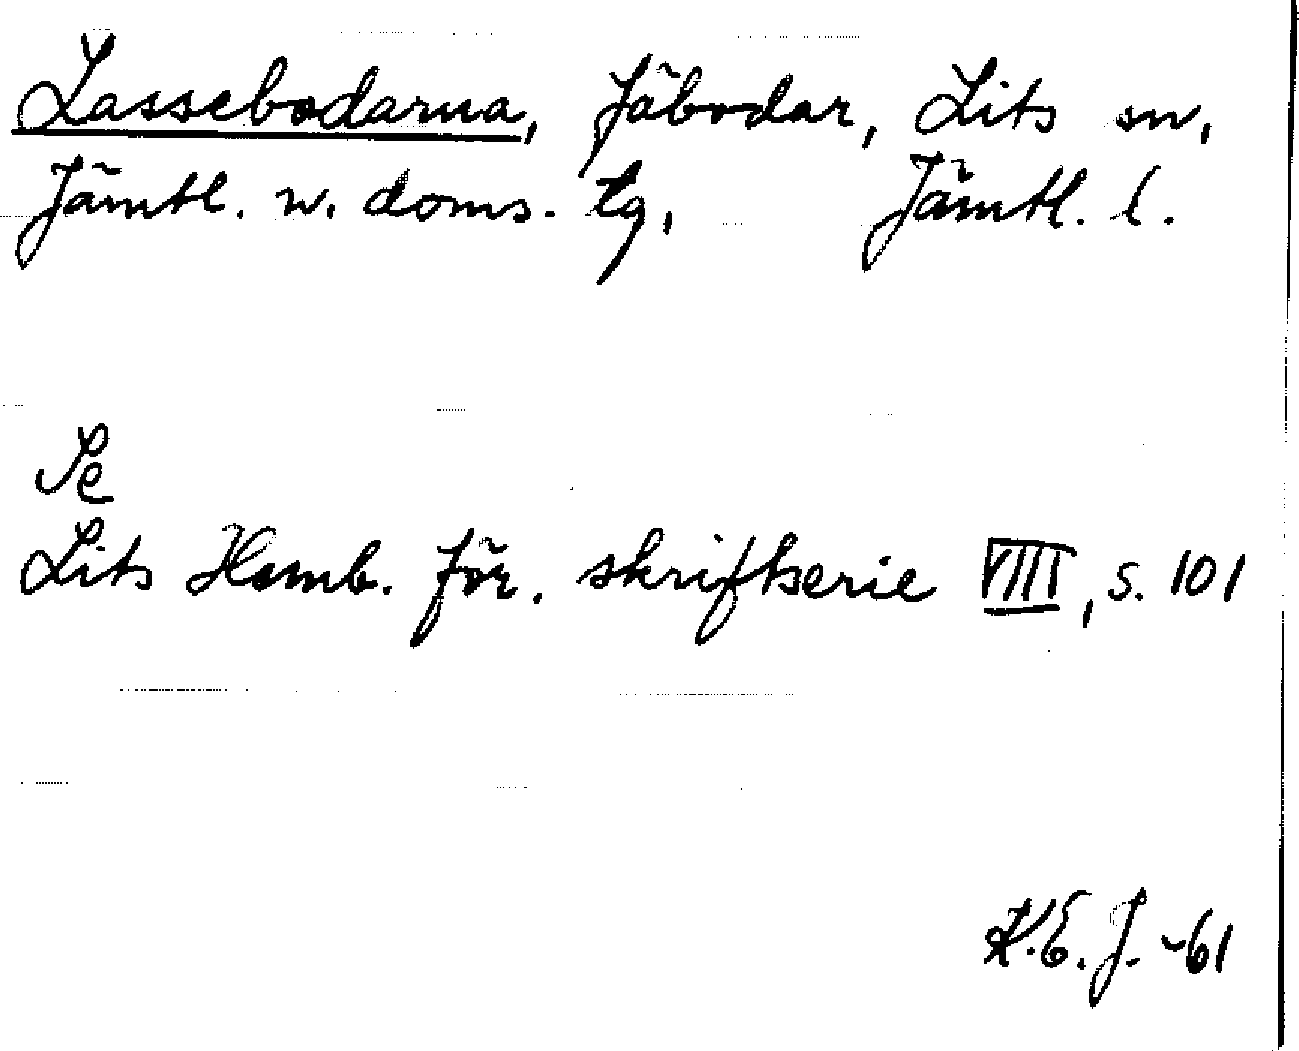 Lassebodarna, fäbodar, Lits sn,
Jämtl. n. doms. tg, Jämtl. l.
Se
Lits Hemb. för. skriftserie VIII, s. 101
K.E.J. -61